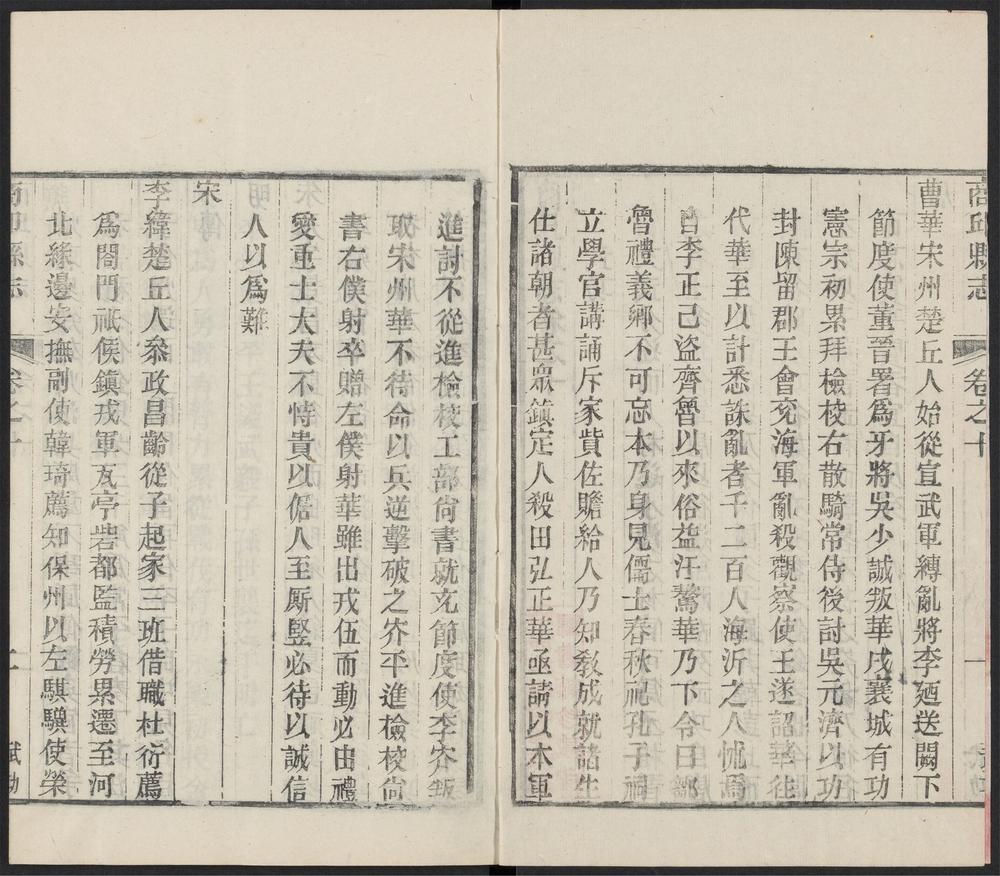 商邱縣志
卷之十
一
曹華宋州楚丘人始從宣武軍縛亂將李廼送闕下
節度使董晉署爲牙將吳少誠叛華戌襄城有功
憲宗初累拜檢校右散騎常侍後討吳元濟以功
封陳留郡王會兖海軍亂殺觀察使王遂詔華往
代華至以計悉誅亂者千二百人海沂之人怵焉
自李正己盜齊魯以來俗益汙驁華乃下令曰鄒
魯禮義鄉不可忘本乃身見儒士春秋祀孔子祠
立學官講誦斥家貲佐贍給人乃知敎成就諸生
仕諸朝者甚眾鎮定人殺田弘正華亟請以本軍
進討不從進檢校工部尙書就充節度使李㝏叛
取宋州華不待命以兵逆擊破之㝏平進檢校尙
書右僕射卒贈左僕射華雖出戎伍而動必由禮
愛重士大夫不恃貴以倨人至厮竪必待以誠信
人以爲難
宋
李緯楚丘人叅政昌齡從子起家三班借職杜衍薦
爲閤門祇候鎮戎軍瓦亭砦都監積勞累遷至河
北緣邊安撫副使韓琦薦知保州以左騏驥使榮
商邱縣志
卷之十